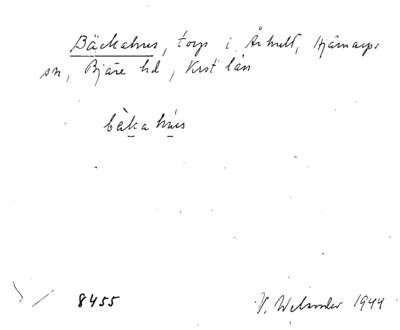 Bäckahus, torp i Århult, Hjärnarps
sn, Bjäre hd, Krist län
bàka hús
8455 V. Welander 1944